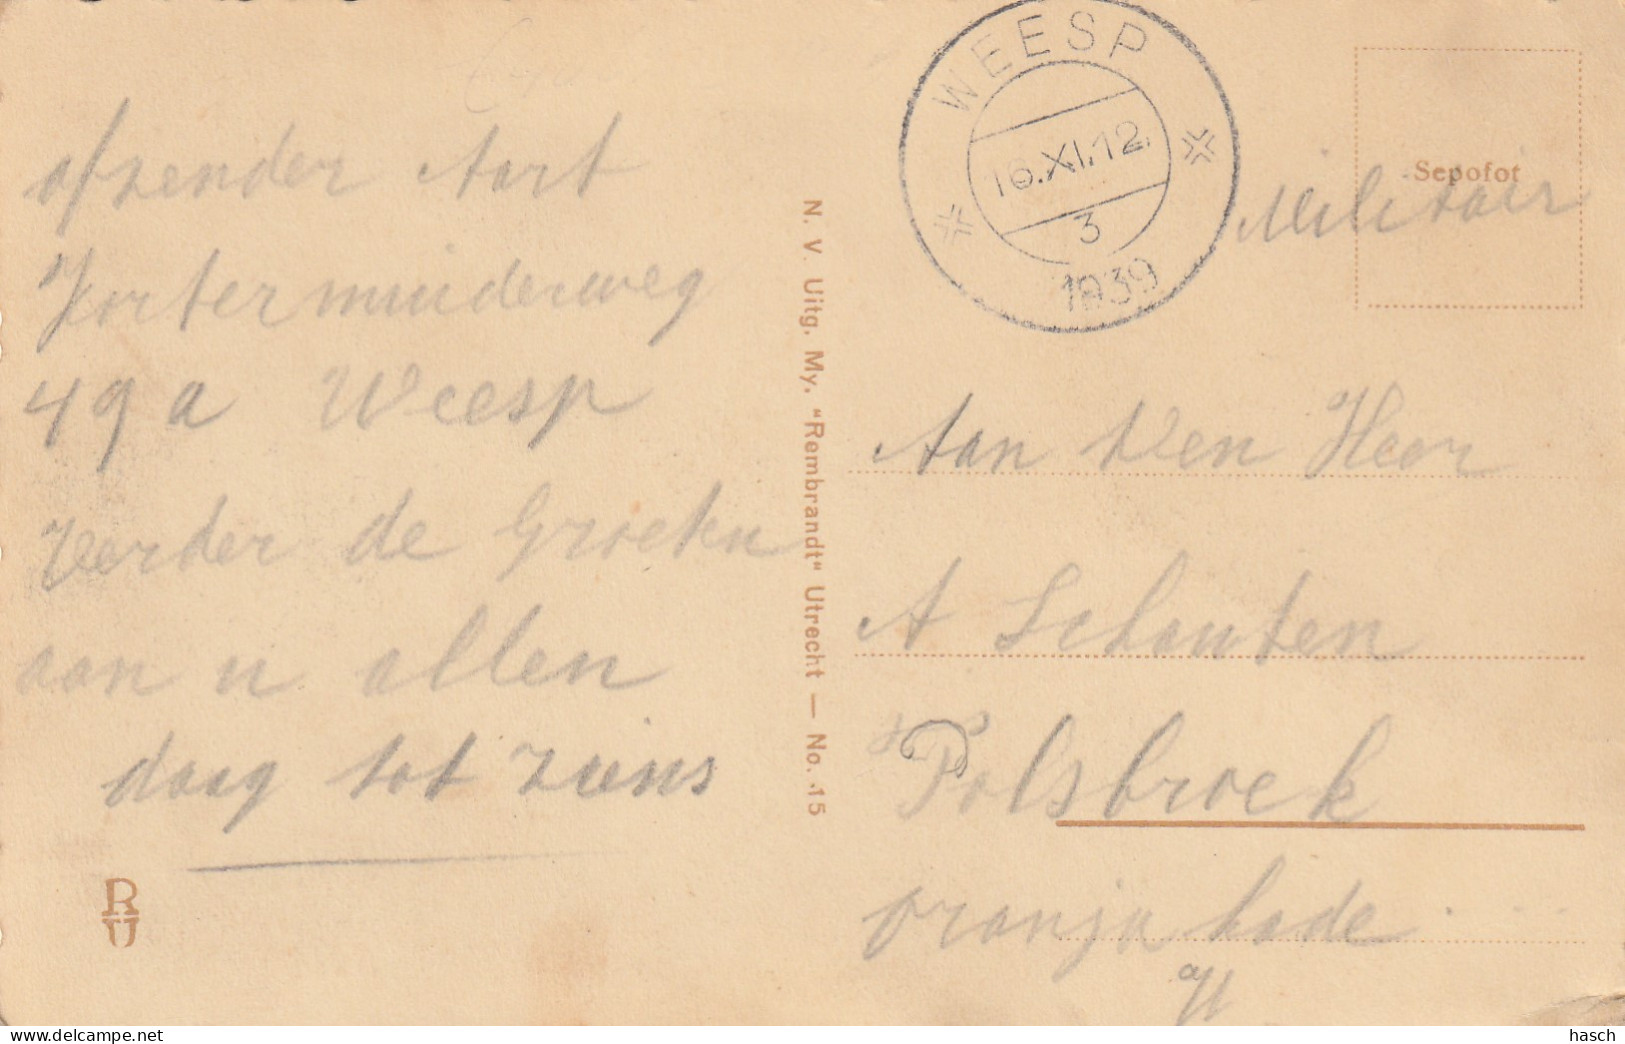 afzender Aart
Korterminderweg
49 a Weesp
Verder de Groeten
aan u allen
daag tot ziens
R
U
N. V. Uitg. My. "Rembrandt" Utrecht — No. 15
WEESP
16.XI.12.
3
1939
Sepofot
Militair
Aan Den Heer
A Schouten
Polsbroek
oranja kade
hasch